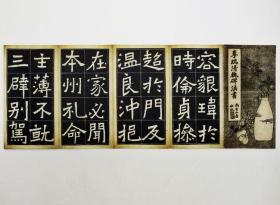 李瑞清魏碑法書
容貌瑋於
時倫貞操
超於門友
溫良沖挹
在家必聞
本州礼命
主薄不就
三辟別駕